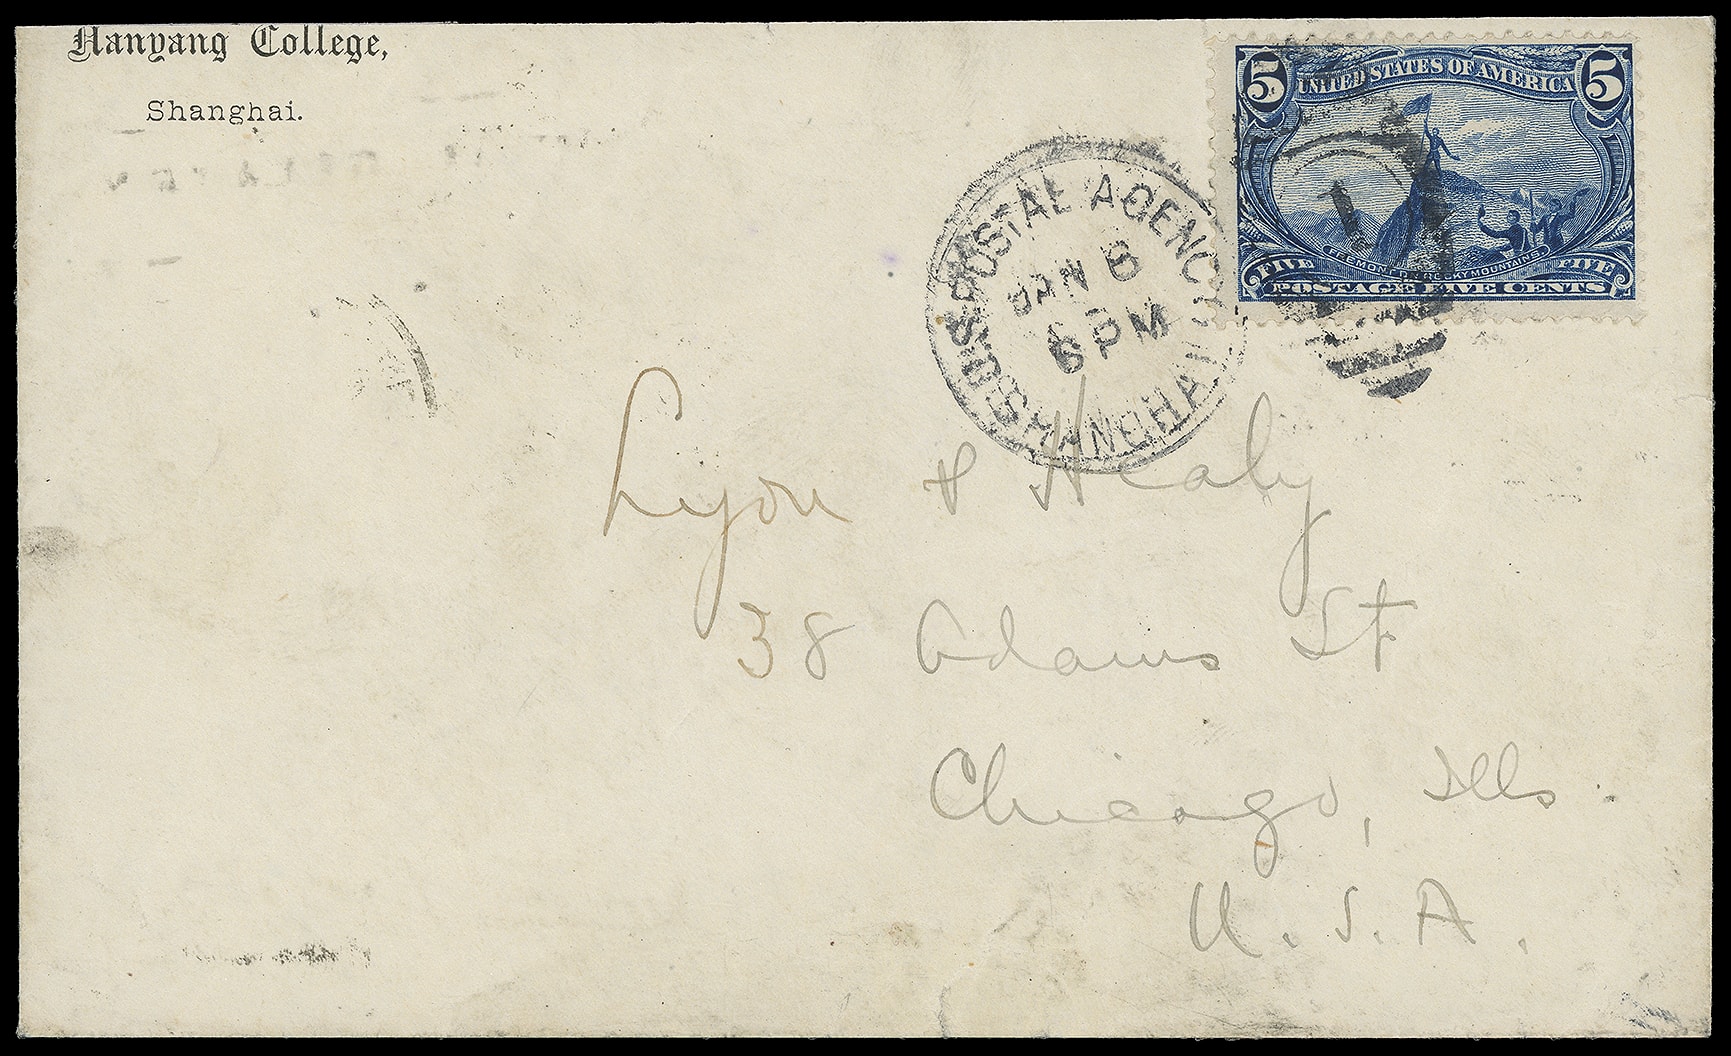 Nanyang College,
Shanghai.
U.S. POSTAL AGENCY
JAN 6
6 PM
SHANGHAI
1
5 UNITED STATES OF AMERICA 5
FREMONT ON ROCKY MOUNTAINS
FIVE FIVE
POSTAGE FIVE CENTS
Lyon & Healy
38 Adams St
Chicago, Ills.
U.S.A.